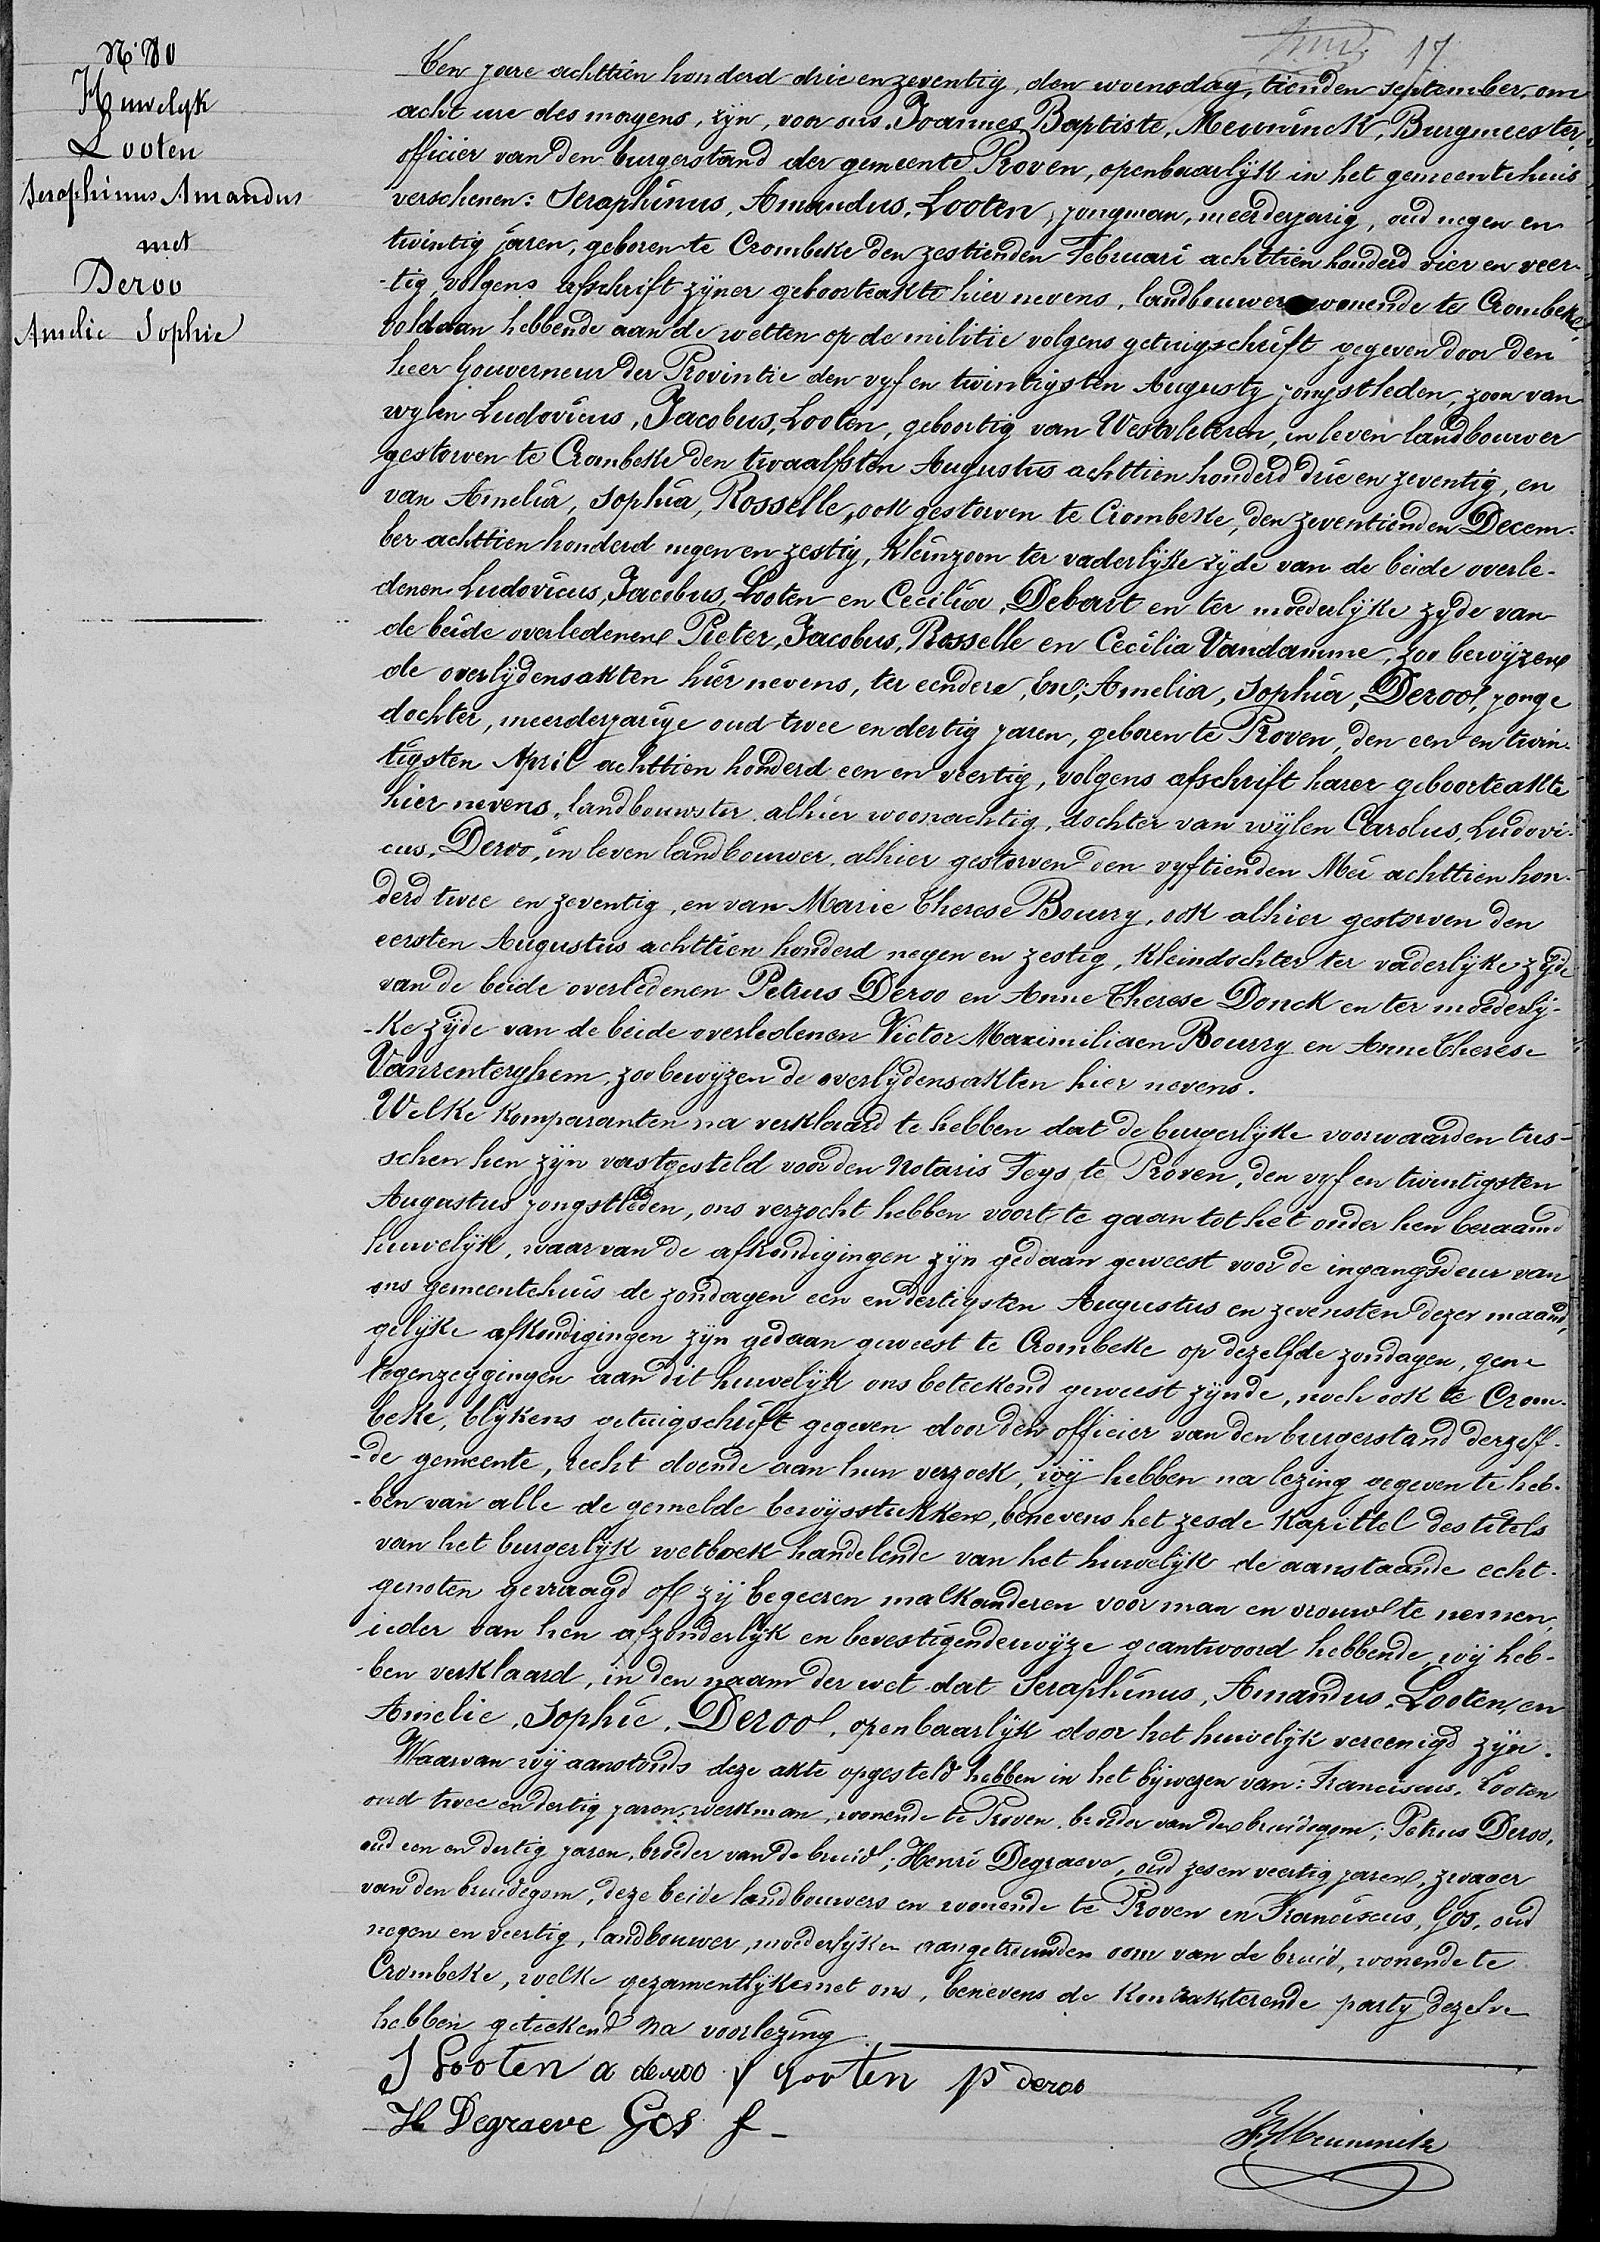 17.
N° 80
Huwelyk
Looten
Seraphinus Amandus
met
Deroo
Amelie Sophie
Ten jare achttien honderd drie en zeventig, den woensdag, tienden september, om
acht ure des morgens, zyn, voor ons Joannes Baptiste, Meuninck, Burgmeester,
officier van den burgerstand der gemeente Proven, openbaarlyk in het gemeentehuis
verschenen: Seraphinus, Amandus, Looten, jongman, meerderjarig, oud negen en
twintig jaren, geboren te Crombeke den zestienden Februari achttien honderd vier en veer-
-tig, volgens afschrift zyner geboorteakte hier nevens, landbouwer wonende te Crombeke,
voldaan hebbende aan de wetten op de militie volgens getuigschrift gegeven door den
heer Gouverneur der Provintie den vyf en twintigsten Augusty jongstleden, zoon van
wylen Ludovicus, Jacobus, Looten, geboortig van Westvleteren, in leven landbouwer
gestorven te Crombeke den twaalfsten Augustus achttien honderd drie en zeventig, en
van Amelia, Sophia, Rosselle, ook gestorven te Crombeke, den zeventienden Decem-
ber achttien honderd negen en zestig, kleinzoon ter vaderlyke zyde van de beide overle-
denen Ludovicus, Jacobus, Looten en Cecilia, Debart en ter moederlyke zyde van
de beide overledenen Pieter, Jacobus, Rosselle en Cecilia Vandamme, zoo bewyzen
de overlydensakten hier nevens, ter eendere, En; Amelia, Sophia, Deroo, jonge
dochter, meerderjarige oud twee en dertig jaren, geboren te Proven, den een en twin-
tigsten April achttien honderd een en veertig, volgens afschrift harer geboorteakte
hier nevens, landbouwster, alhier woonachtig, dochter van wylen Carolus, Ludovi-
cus, Deroo, in leven landbouwer, alhier gestorven den vyftienden Mei achttien hon-
derd twee en zeventig, en van Marie Therese Bourry, ook alhier gestorven den
eersten Augustus achttien honderd negen en zestig, kleindochter ter vaderlyke zyde
van de beide overledenen Petrus Deroo en Anne Therese Donck en ter moederly-
-ke zyde van de beide overledenen Victor Maximiliaen Bourry en Anne Therese
Vanrenterghem, zoo bewyzen de overlydensakten hier nevens.
Welke komparanten na verklaard te hebben dat de burgerlyke voorwaarden tus-
schen hen zyn vastgesteld voor den Notaris Feys te Proven, den vyf en twintigsten
Augustus jongstleden, ons verzocht hebben voort te gaan tot het onder hen beraamd
huwelyk, waarvan de afkondigingen zyn gedaan geweest voor de ingangsdeur van
ons gemeentehuis de zondagen een en dertigsten Augustus en zevensten dezer maand,
gelyke afkondigingen zyn gedaan geweest te Crombeke op dezelfde zondagen, gene
tegenzeggingen aan dit huwelyk ons beteekend geweest zynde, noch ook te Crom-
beke, blykens getuigschrift gegeven door den officier van den burgerstand derzelf-
-de gemeente, recht doende aan hun verzoek, wy hebben na lezing gegeven te heb-
-ben van alle de gemelde bewysstukken, benevens het zesde kapittel des titels
van het burgerlyk wetboek handelende van het huwelyk de aanstaande echt-
genoten gevraagd of zy begeeren malkanderen voor man en vrouw te nemen,
ieder van hen afzonderlyk en bevestigenderwyze geantwoord hebbende, wy heb-
-ben verklaard, in den naam der wet dat Seraphinus, Amandus, Looten, en
Amelie, Sophie, Deroo, openbaarlyk door het huwelyk vereenigd zyn.
Waarvan wy aanstonds deze akte opgesteld hebben in het bywezen van: Franciscus, Looten
oud twee en dertig jaren, werkman, wonende te Proven, broeder van den bruidegom; Petrus Deroo,
oud een en dertig jaren, broeder van de bruid; Henri Degraeve, oud zes en veertig jaren, zwager
van den bruidegom, deze beide landbouwers en wonende te Proven en Franciscus, Gos, oud
negen en veertig, landbouwer, moederlyken aangetrouwden oom van de bruid, wonende te
Crombeke, welke gezamentlyk met ons, benevens de kontrakterende party dezelve
hebben geteekend na voorlezing
S Looten a deroo f Looten p deroo
H Degraeve Gos f
JB Meuninck